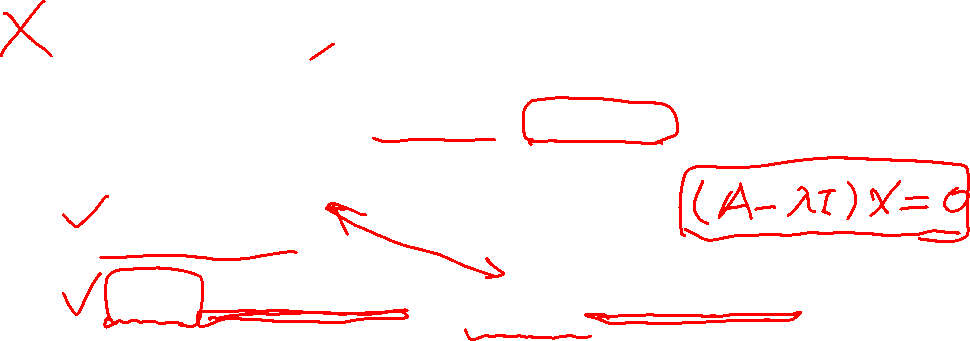 (A-λI)X=0